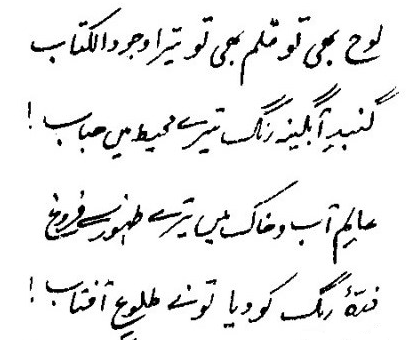 لوح بھی تو قلم بھی تو تیرا وجود الکتاب
گنبدِ آبگینہ رنگ تیرے محیط میں حباب!
عالمِ آب و خاک میں تیرے ظہور سے فروغ
ذرّۂ ریگ کو دیا تو نے طلوعِ آفتاب!